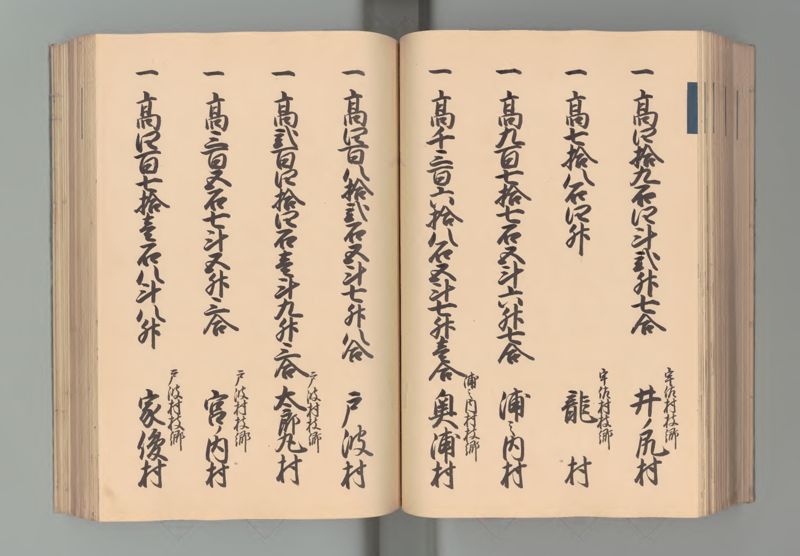 一 高四拾九石四斗弐升七合 宇佐村枝郷 井ノ尻村
一 高七拾八石四升 宇佐村枝郷 龍村
一 高九百七拾七石五斗六升七合 浦之内村
一 高千三百六拾八石五斗七升壱合 浦之内村枝郷 奥浦村
一 高四百八拾弐石五斗七升八合 戸波村
一 高弐百四拾四石壱斗九升三合 戸波村枝郷 太郎丸村
一 高三百五石七斗五升三合 戸波村枝郷 宮之内村
一 高四百七拾壱石八斗八升 戸波村枝郷 家俊村